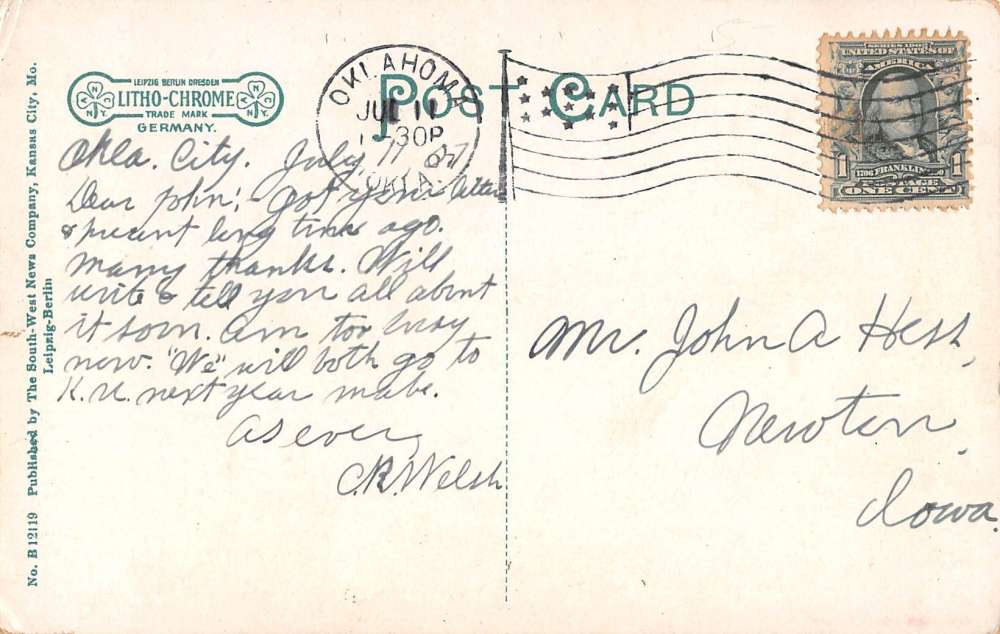 No. B 12119 Published by The South-West News Company, Kansas City, Mo.
Leipzig-Berlin
LEIPZIG BERLIN DRESDEN
LITHO-CHROME
TRADE MARK
GERMANY.
N.Y.
N.Y.
POST CARD
OKLAHOMA
JUL 11
30P
OKLA.
UNITED STATES OF
AMERICA
1 1
FRANKLIN
POSTAGE
ONE CENT
Okla. City. July 11 07
Dear John: Got your letter
& present long time ago.
Many thanks. Will
write & tell you all about
it soon. Am too busy
now. "We" will both go to
K.U. next year mabe.
As ever,
C.R. Welsh
Mr. John A Hess,
Newton,
Iowa.